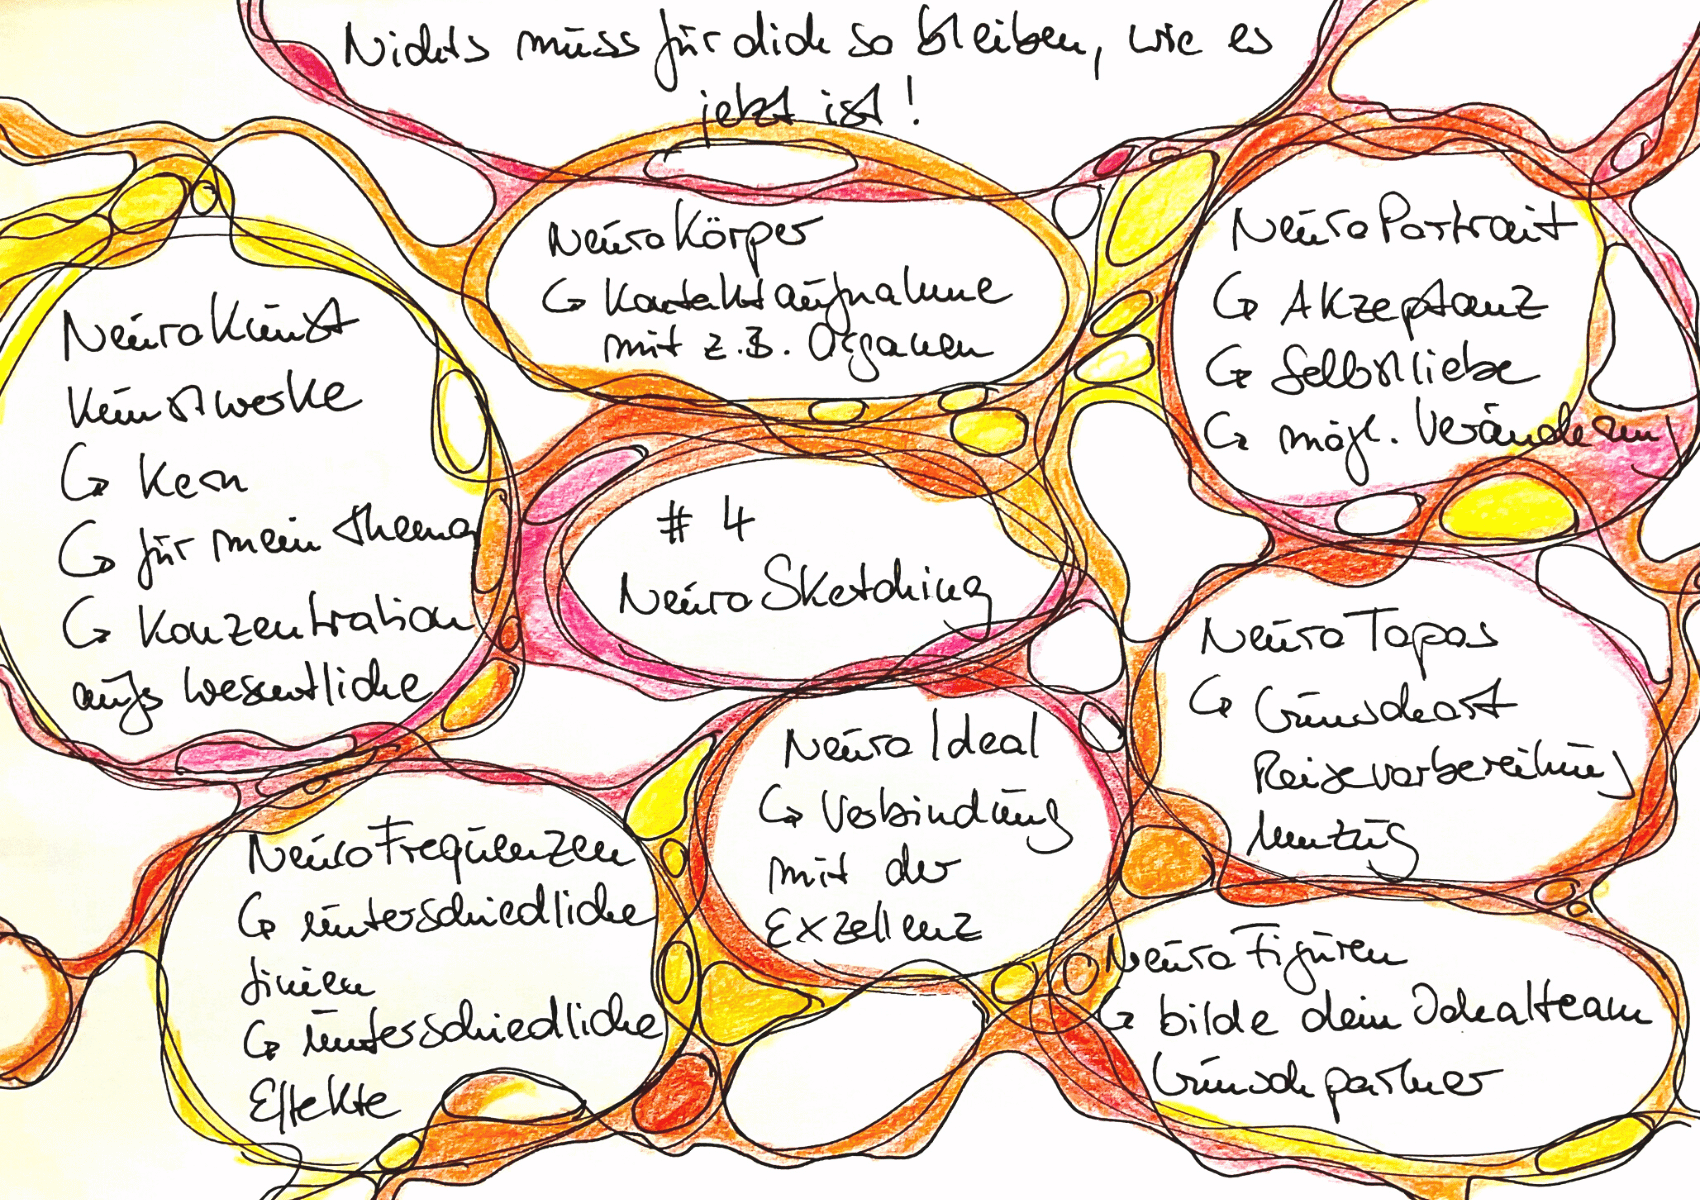 Nichts muss für dich so bleiben, wie es
jetzt ist!
NeuroKörper
↪ Kontaktaufnahme
mit z.B. Organen
NeuroPortrait
↪ Akzeptanz
↪ Selbstliebe
↪ mögl. Veränderung
NeuroKunst
Kunstwerke
↪ Kern
↪ für mein Thema
↪ Konzentration
aufs Wesentliche
# 4
NeuroSketching
NeuroTopos
↪ Wunschort
Reisevorbereitung
Umzug
NeuroIdeal
↪ Verbindung
mit der
Exzellenz
NeuroFrequenzen
↪ unterschiedliche
Linien
↪ unterschiedliche
Effekte
NeuroFiguren
↪ bilde dein Idealteam
Wunschpartner